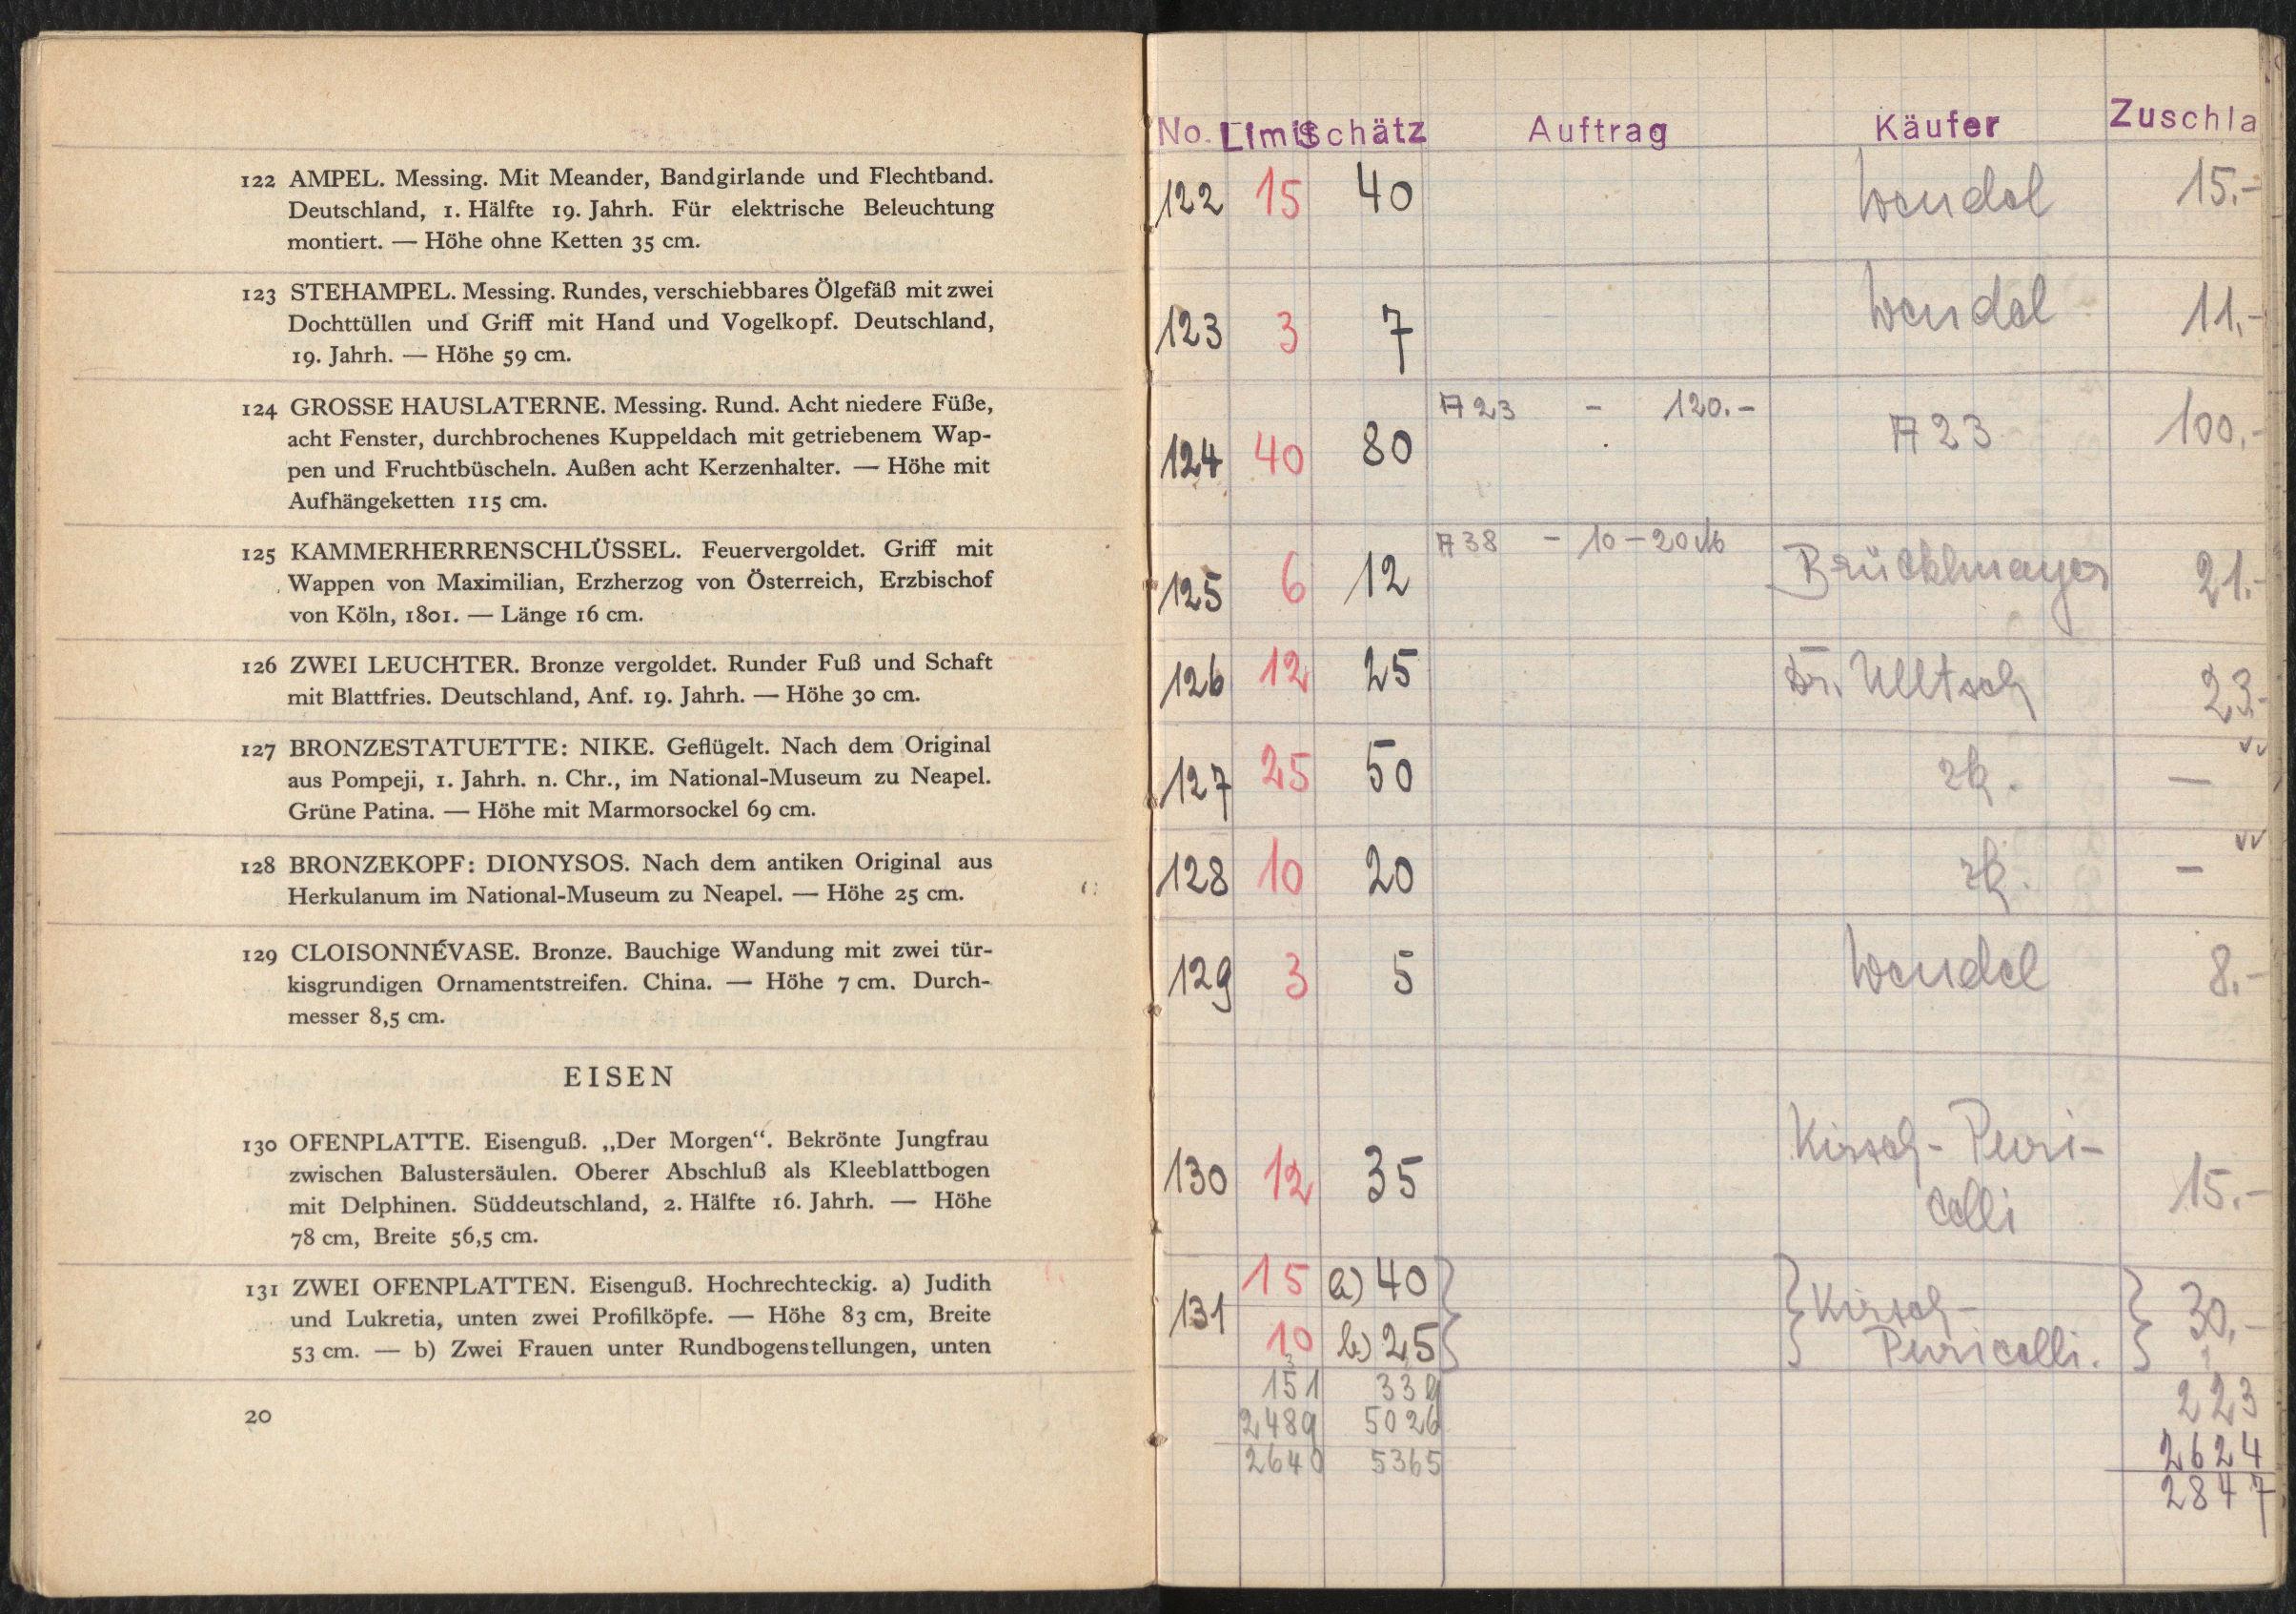 122 AMPEL. Messing. Mit Meander, Bandgirlande und Flechtband.
Deutschland, 1. Hälfte 19. Jahrh. Für elektrische Beleuchtung
montiert. — Höhe ohne Ketten 35 cm.
123 STEHAMPEL. Messing. Rundes, verschiebbares Ölgefäß mit zwei
Dochttüllen und Griff mit Hand und Vogelkopf. Deutschland,
19. Jahrh. — Höhe 59 cm.
124 GROSSE HAUSLATERNE. Messing. Rund. Acht niedere Füße,
acht Fenster, durchbrochenes Kuppeldach mit getriebenem Wap-
pen und Fruchtbüscheln. Außen acht Kerzenhalter. — Höhe mit
Aufhängeketten 115 cm.
125 KAMMERHERRENSCHLÜSSEL. Feuervergoldet. Griff mit
Wappen von Maximilian, Erzherzog von Österreich, Erzbischof
von Köln, 1801. — Länge 16 cm.
126 ZWEI LEUCHTER. Bronze vergoldet. Runder Fuß und Schaft
mit Blattfries. Deutschland, Anf. 19. Jahrh. — Höhe 30 cm.
127 BRONZESTATUETTE: NIKE. Geflügelt. Nach dem Original
aus Pompeji, 1. Jahrh. n. Chr., im National-Museum zu Neapel.
Grüne Patina. — Höhe mit Marmorsockel 69 cm.
128 BRONZEKOPF: DIONYSOS. Nach dem antiken Original aus
Herkulanum im National-Museum zu Neapel. — Höhe 25 cm.
129 CLOISONNÉVASE. Bronze. Bauchige Wandung mit zwei tür-
kisgrundigen Ornamentstreifen. China. — Höhe 7 cm. Durch-
messer 8,5 cm.
EISEN
130 OFENPLATTE. Eisenguß. „Der Morgen“. Bekrönte Jungfrau
zwischen Balustersäulen. Oberer Abschluß als Kleeblattbogen
mit Delphinen. Süddeutschland, 2. Hälfte 16. Jahrh. — Höhe
78 cm, Breite 56,5 cm.
131 ZWEI OFENPLATTEN. Eisenguß. Hochrechteckig. a) Judith
und Lukretia, unten zwei Profilköpfe. — Höhe 83 cm, Breite
53 cm. — b) Zwei Frauen unter Rundbogenstellungen, unten
20
No. Limit Schätz Auftrag Käufer Zuschla
122 15 40 Wendel 15.-
123 3 7 Wendel 11.-
124 40 80 A 23 - 120.- A 23 100.-
125 6 12 A 38 - 10 - 20 M Brücklmayer 21.-
126 12 25 Dr. Ulltsch 23.-
127 25 50 zk. —
128 10 20 zk. —
129 3 5 Wendel 8.-
130 12 35 Kirsch-Puri-
celli 15.-
131 15 a) 40 Kirsch- 30.-
10 b) 25 Puricelli.
151 339 223
2489 5026 2624
2640 5365 2847